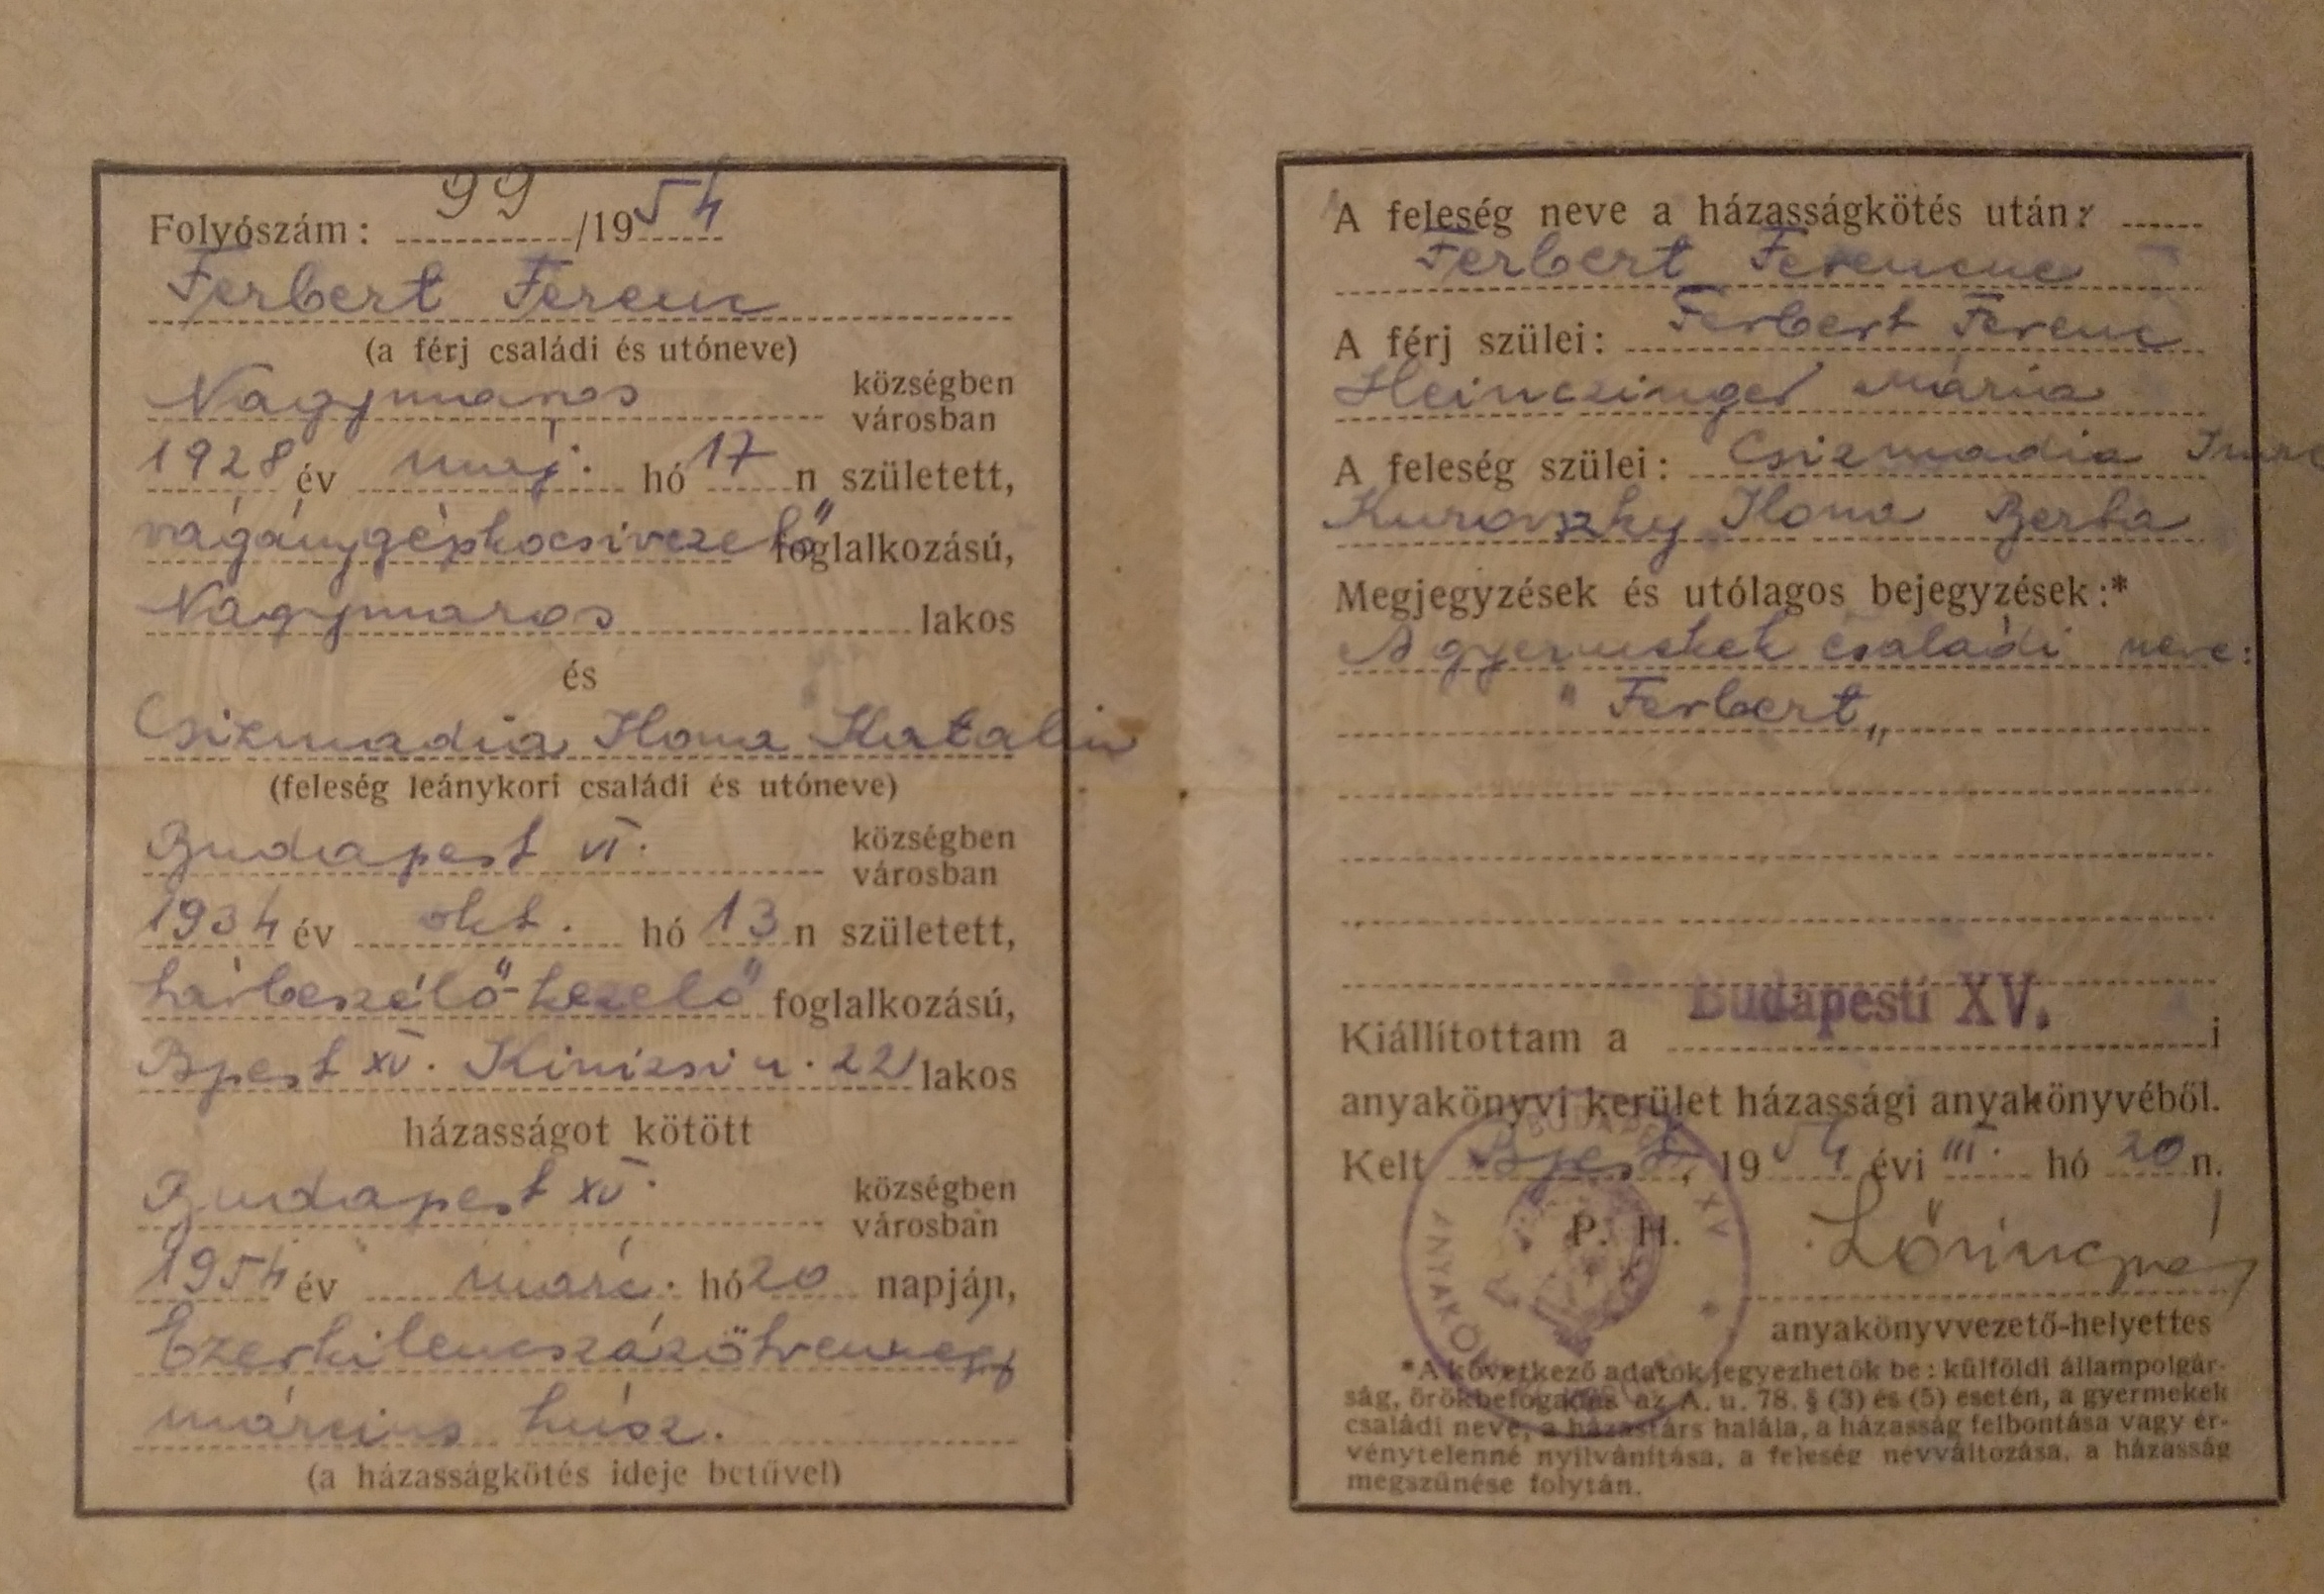 Folyószám: 99/1954
Ferbert Ferenc
(a férj családi és utóneve)
Nagymaros községben
városban
1928 év máj. hó 17 n született,
vágánygépkocsivezető foglalkozású,
Nagymaros lakos
és
Csizmadia Ilona Katalin
(feleség leánykori családi és utóneve)
Budapest VI. községben
városban
1934 év okt. hó 13 n született,
távbeszélő-kezelő foglalkozású,
Bpest XV. Kinizsi u. 22 lakos
házasságot kötött
Budapest XV. községben
városban
1954 év márc. hó 20 napján,
Ezerkilencszázötvennégy
március húsz.
(a házasságkötés ideje betűvel)
A feleség neve a házasságkötés után:
Ferbert Ferencné
A férj szülei: Ferbert Ferenc
Heinczinger Mária
A feleség szülei: Csizmadia Imre
Kurovszky Ilona Berta
Megjegyzések és utólagos bejegyzések:*
A gyermekek családi neve:
"Ferbert„
Kiállítottam a Budapesti XV. i
anyakönyvi kerület házassági anyakönyvéből.
Kelt Bpest, 1954 évi III. hó 20 n.
P. H.
BUDAPEST XV
anyakönyvvezető-helyettes
*A következő adatok jegyezhetők be: külföldi állampolgár-
ság, örökbefogadás az A. u. 78. § (3) és (5) esetén, a gyermekek
családi neve, a házastárs halála, a házasság felbontása vagy ér-
vénytelenné nyilvánítása, a feleség névváltozása, a házasság
megszűnése folytán.